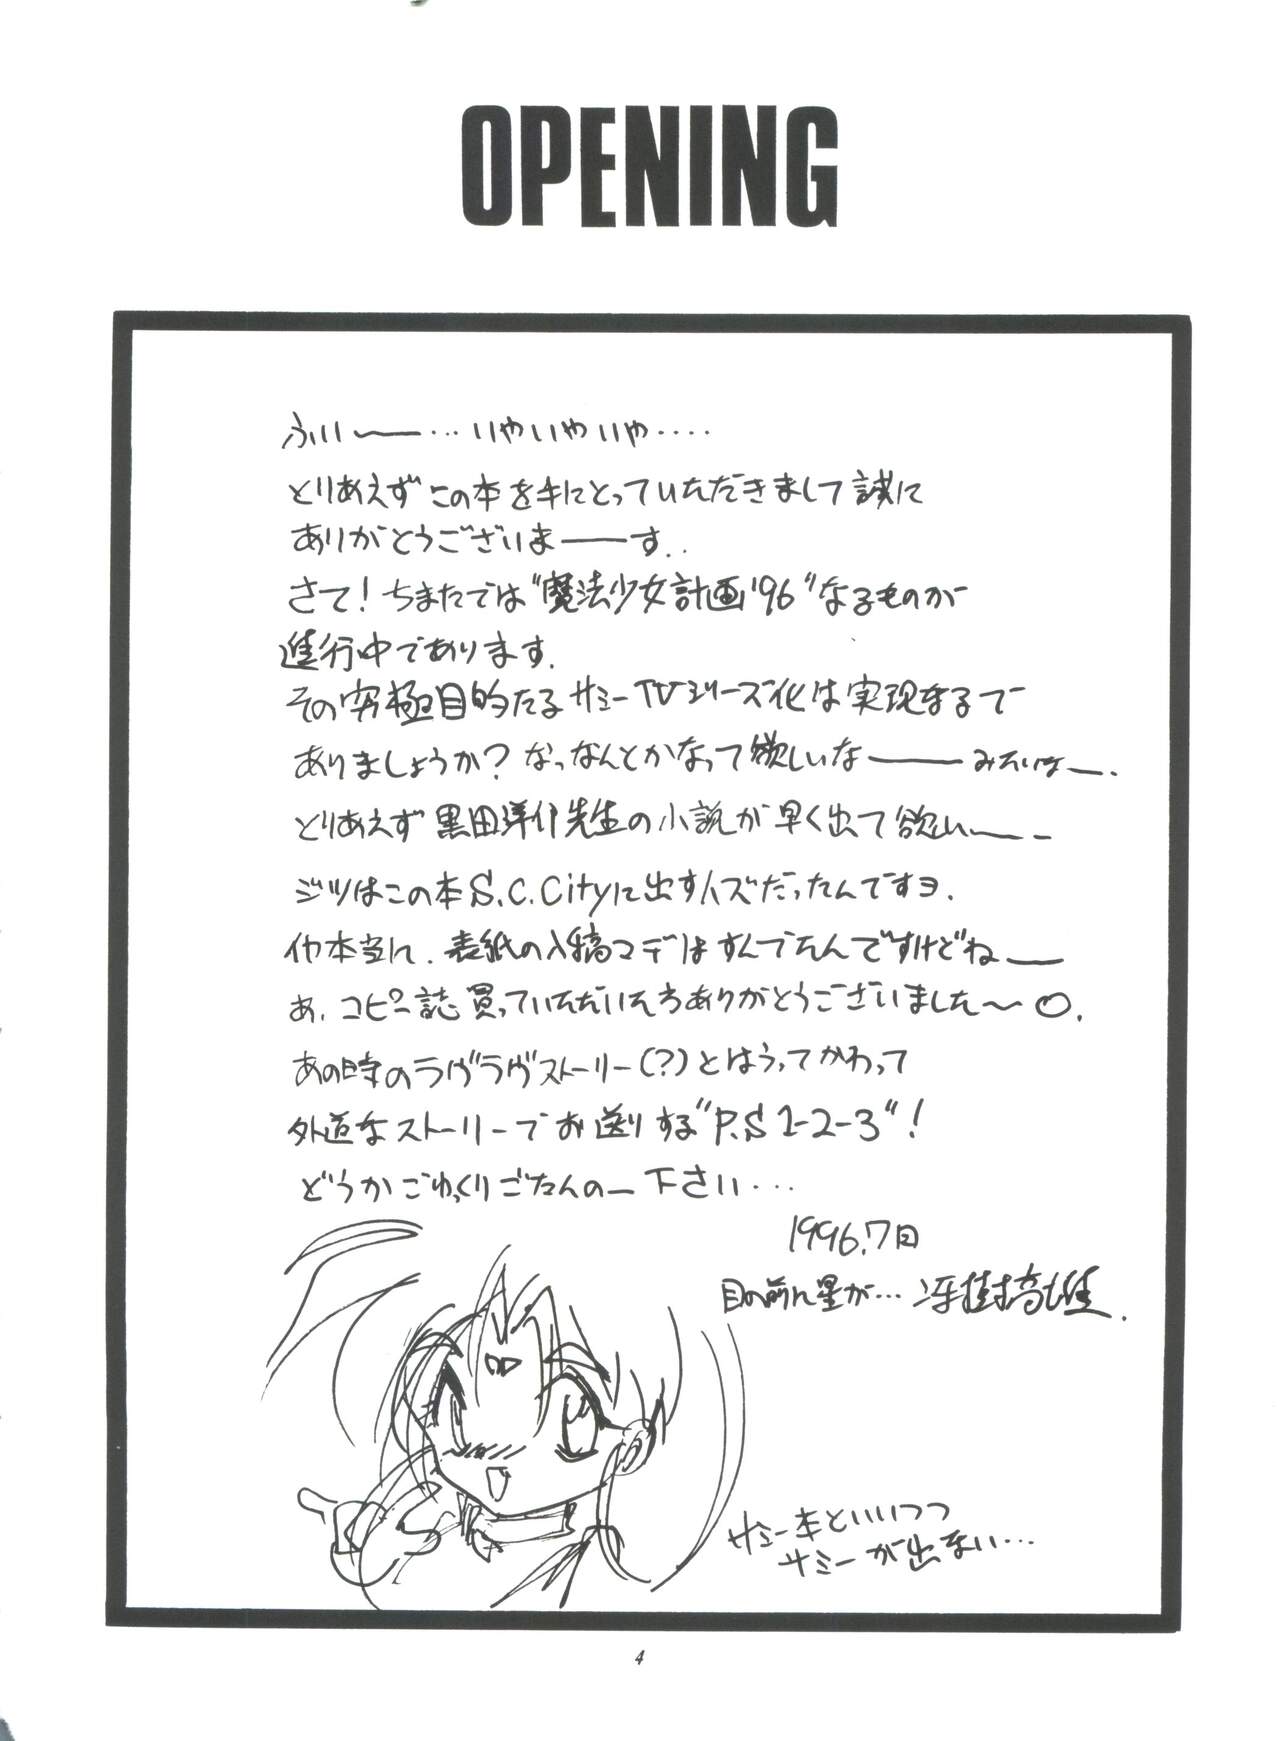 OPENING
ふいー…いやいやいや‥‥
とりあえずこの本を手にとっていただきまして誠に
ありがとうございまーーす‥
さて!ちまたでは"魔法少女計画'96"なるものが
進行中であります.
その究極目的たるサミーTVシリーズ化は実現するで
ありましょうか?なっなんとかなって欲しいなーーみたいなー.
とりあえず黒田洋介先生の小説が早く出て欲しいーー
ジツはこの本S.C.Cityに出すハズだったんですヨ.
イヤ本当に.表紙の入稿マデはすんでたんですけどねー
あ,コピー誌買っていただいた方ありがとうございました〜○.
あの時のラヴラヴストーリー(?)とはうってかわって
外道なストーリーでお送りする"P.S 1-2-3"!
どうかごゆっくりごたんのー下さい‥‥
1996.7月
目の前に星が…冴樹高雄.
サミー本といいつつ
サミーが出ない…
4